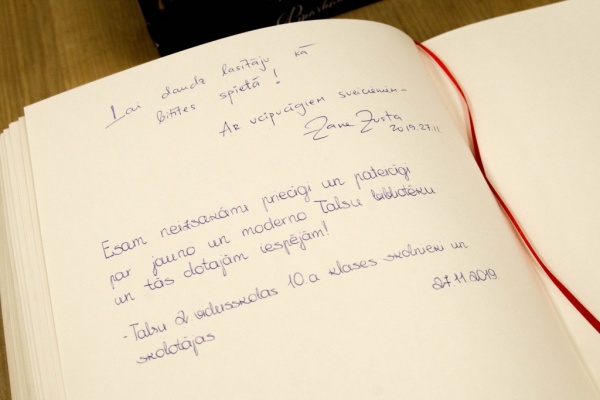 Lai daudz lasītāju kā
bitītes spietā!
Ar vcipucīgiem sveicienim-
Zane Zusta
2019.27.11
Esam neizsakāmi priecīgi un pateicīgi
par jauno un moderno Talsu bibliotēku
un tās dotajām iespējām!
-Talsu 2. vidusskolas 10.a klases skolnieki un
skolotājas
27.11.2019